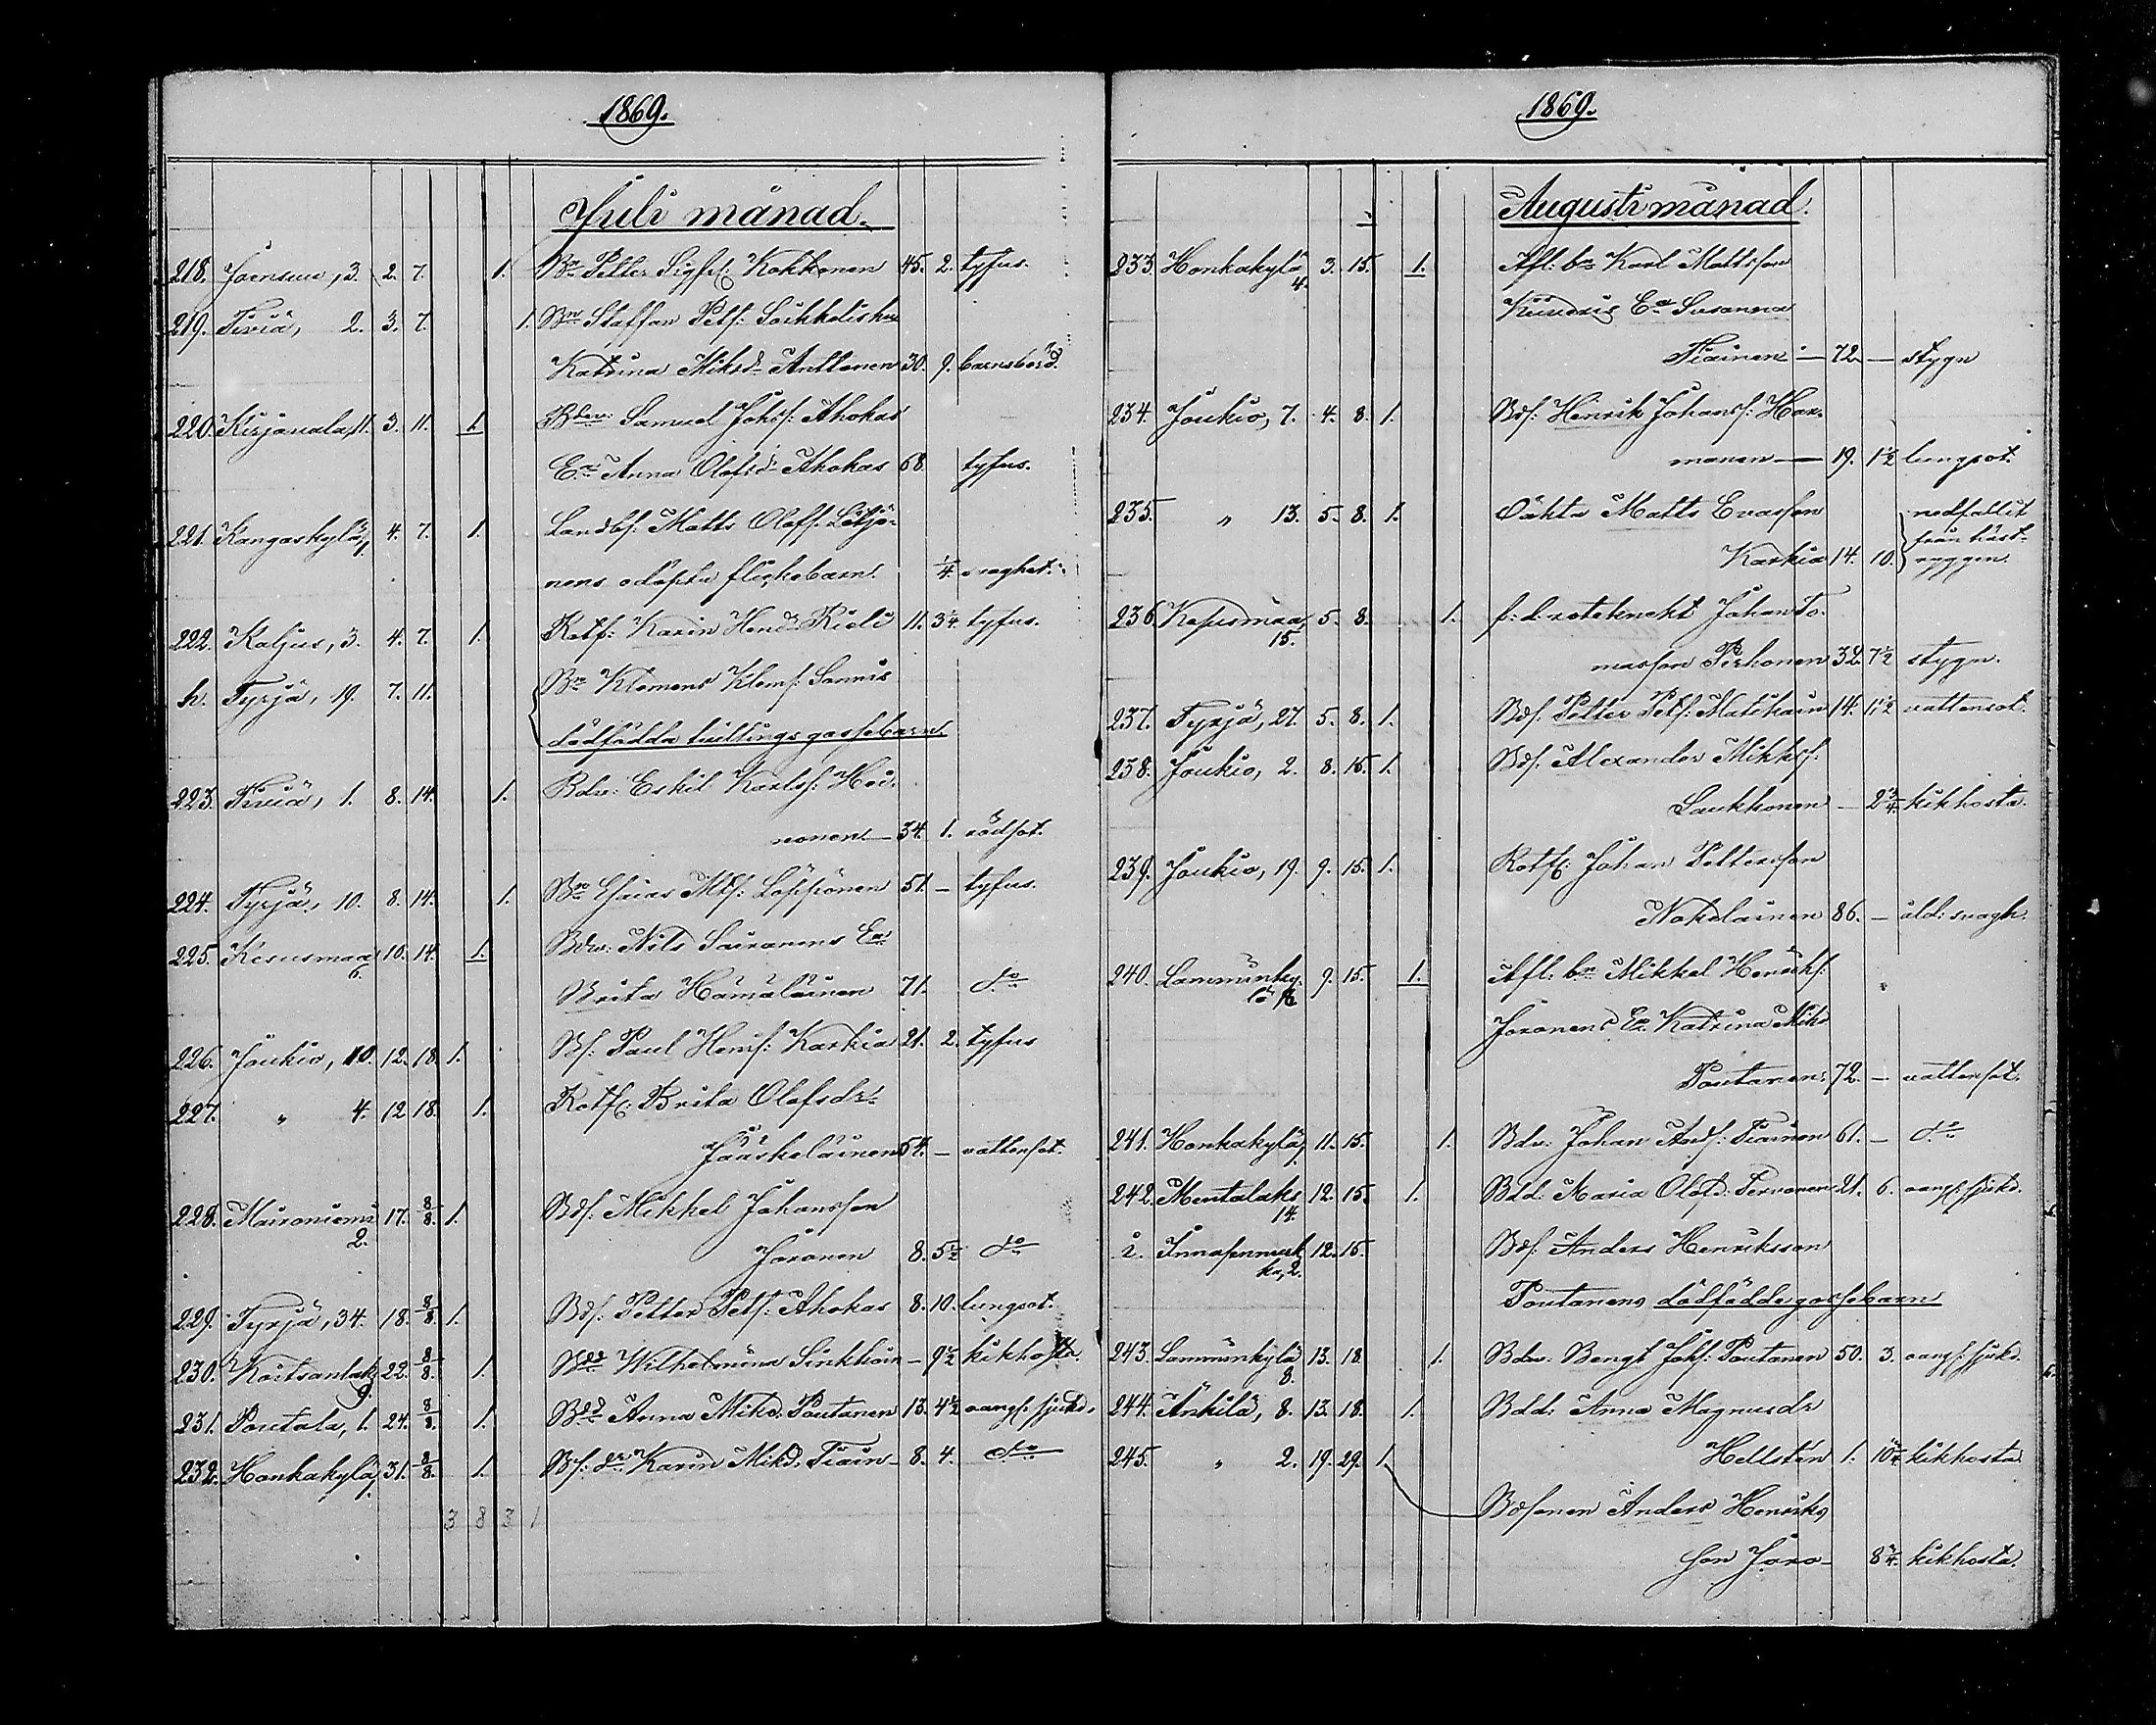 1869.
Juli månad.
218. Joensuu, 3. 2. 7. 1. Bn Petter Sigfrs: Kokkonen 45. 2. tyfus.
219. Tiviä, 2. 3. 7. 1. Bn Staffan Petf: Loikkalis hu
Katrina Miksdr Anttonen 30. 9. barnsbörd.
220. Kirjavala, 11. 3. 11. 1. Bdn: Samuel Johsf: Ahokas
Ea Anna Olofsdr Ahokas 68. tyfus.
221. Kangaskylä, 4. 7. 1. Landbf: Matts Olofs: Lötjö-
nens odöpta flickebarn. 1/4. svaghet.
222. Kaljus, 3. 4. 7. 1. Rotf: Karin Hendr Rieli 11. 3 1/4. tyfus.
h. Tyrjä, 19. 7. 11. Bn Klemens Klemf: Sonnis
dödfödda tvillings gossebarn.
223. Tiviä, 1. 8. 14. 1. Bdn: Eskil Karlsf: Hei-
nonen — 34. 1. rödsot.
224. Tyrjä, 10. 8. 14. 1. Bn Esaias Mtf: Löppönen 51. — tyfus.
225. Kesusmaa 6. 10. 14. 1. Bdn: Nils Sairanens Ea
Brita Hämäläinen 71. do
226. Joukio, 10. 12. 18. 1. Bf: Paul Hemf: Karhia 21. 2. tyfus
227. " 4. 12 18. 1. Rotf: Brita Olofsdr
Jääskeläinen 54. — vattensot.
228. Maironiemi 2. 17. 8/8. 1. Bdf: Mikkel Johansson
Joronen 8. 5 1/2 do
229. Tyrjä, 34. 18. 8/8. 1. Bdf: Petter Petf: Ahokas 8. 10. lungsot.
230. Koitsanlak 9. 22. 8/8. 1. Bdd Wilhelmina Sinkkoin — 9 1/2 kikhosta.
231. Poutala, 1. 24. 8/8. 1. Bdd Anna Mikd. Poutanen 13. 4 1/2 vangs: sjukd.
232. Honkakylä 31. 8/8. 1. Bf: dr Karin Mikd. Tiain- 8. 4. do
3 8 3 1
1869.
Augusti månad.
233. Honkakylä 4. 3. 15. 1. Afl: bn Karl Mattsson
Ea Susanna
Tiainen — 72 — stygn
234. Joukio, 7. 4. 8. 1. Bdf: Henrik Johansf: Har-
manen — 19. 1 1/2 lungsot.
235. " 13. 5. 8. 1. Oäkta Matts Evasson
Karhia 14. 10. nedfallit
från häst-
ryggen.
236. Kesusmaa 15. 5. 8. 1. f: d: roteknekt Johan To-
masson Pirhonen 32. 7 1/2 stygn.
237. Tyrjä, 27. 5. 8. 1. Bdf: Petter Petf: Matikain 14. 11 1/2 vattensot.
238. Joukio, 2. 8. 15. 1. Bdf: Alexander Mikksf:
Laukkonen — 2 3/4. kikhosta.
239. Joukio, 19. 9. 15. 1. Rotf: Johan Pettersson
Nokelainen 86. — åld: svagh.
240. Lamminky-
lä 9. 15. 1. Afl: bn Mikkel Henrikf:
Joronens Ea Katrina Mikd
Poutanen 72. — vattensot.
241. Honkakylä 11. 15. 1. Bdn: Johan Andf: Tiainen 61. — do
242. Mentalaks 14. 12. 15. 1. Bdd: Maria Olofd: Tervonen 21. 6. vangs: sjukd.
i. Innasennuk-
ka, 2. 12. 15. Bdf: Anders Henriksson
Poutanens dödfödda gossebarn
243. Lamminkylä 8. 13. 18. 1. Bdn: Bengt Johf: Poutanen 50. 3. vangs: sjukd.
244. Änkilä, 8. 13. 18. 1. Bdd: Anna Magnusdr
Hellstén 1. 10 3/4 kikhosta
245. " 2. 19. 29. 1.
Bdsonen Anders Henriks
son Joro- 8 3/4. kikhosta.